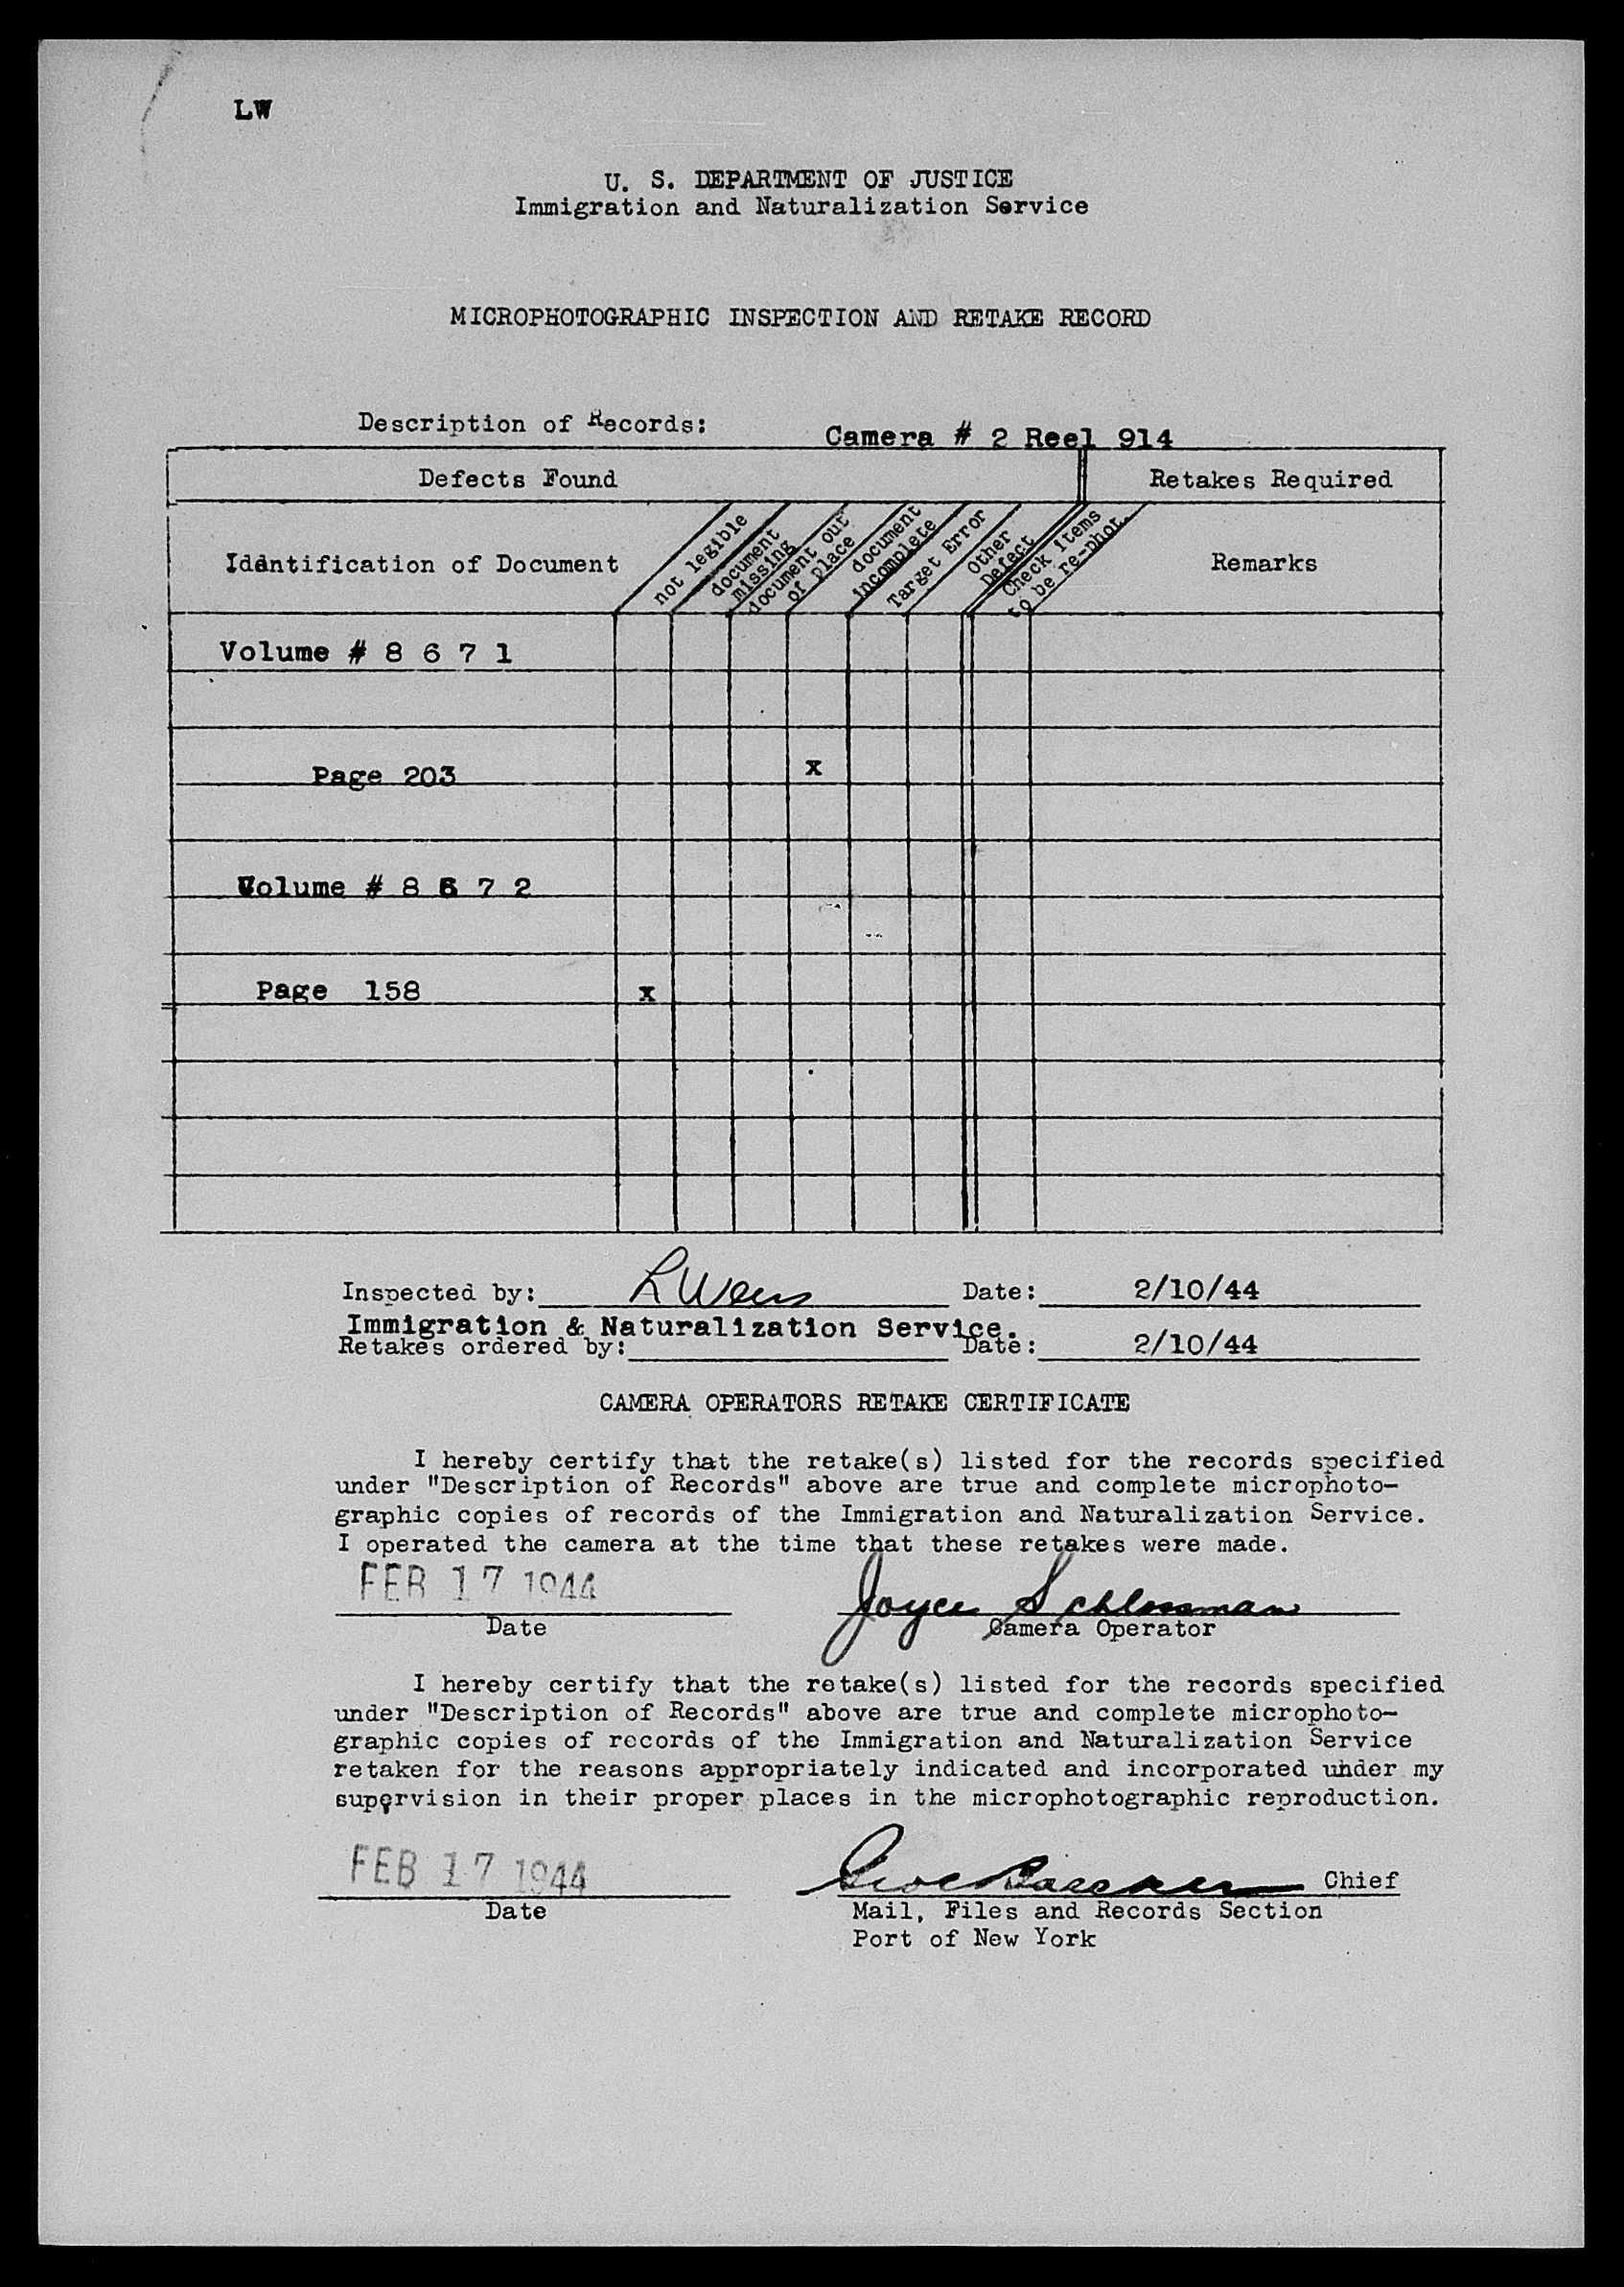 LW
U. S. DEPARTMENT OF JUSTICE
Immigration and Naturalization Service
MICROPHOTOGRAPHIC INSPECTION AND RETAKE RECORD
Description of Records:
Camera # 2 Reel 914
Defects Found
Retakes Required
Identification of Document
not legible
document
missing
document out
of place
document
incomplete
Target Error
other
Defect
Check items
to be re-phot.
Remarks
Volume # 8 6 7 1
Page 203
x
Volume # 8 6 7 2
Page 158
x
Inspected by:
Date: 2/10/44
Immigration & Naturalization Service.
Retakes ordered by:
Date: 2/10/44
CAMERA OPERATORS RETAKE CERTIFICATE
I hereby certify that the retake(s) listed for the records specified
under "Description of Records" above are true and complete microphoto-
graphic copies of records of the Immigration and Naturalization Service.
I operated the camera at the time that these retakes were made.
FEB 17 1944
Joyce Schlossman
Date
Camera Operator
I hereby certify that the retake(s) listed for the records specified
under "Description of Records" above are true and complete microphoto-
graphic copies of records of the Immigration and Naturalization Service
retaken for the reasons appropriately indicated and incorporated under my
supervision in their proper places in the microphotographic reproduction.
FEB 17 1944
Chief
Date
Mail, Files and Records Section
Port of New York